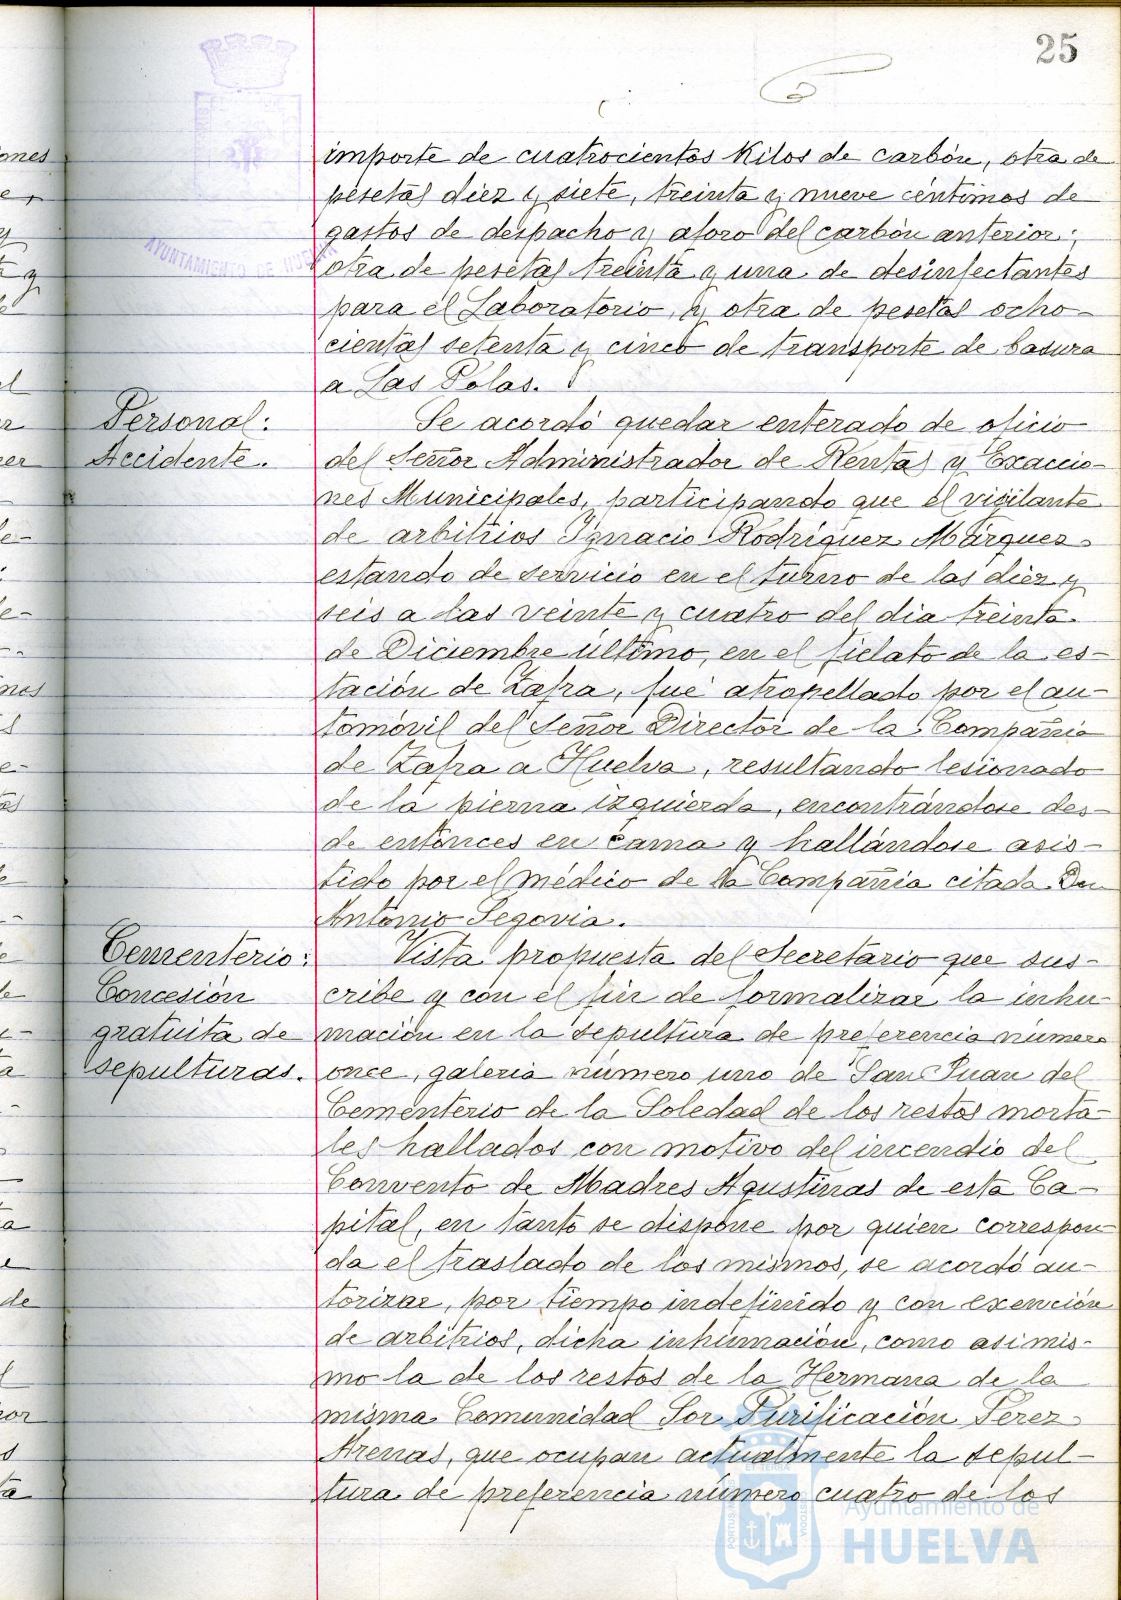 25
AYUNTAMIENTO DE HUELVA
importe de cuatrocientos Kilos de carbón, otra de
pesetas diez y siete, treinta y nueve céntimos de
gastos de despacho y aforo del carbón anterior;
otra de pesetas treinta y una de desinfectantes
para el Laboratorio, y otra de pesetas ocho-
cientas setenta y cinco de transporte de basura
a Las Polas.
Personal:
Accidente.
Se acordó quedar enterado de oficio
del Señor Administrador de Rentas y Exaccio-
nes Municipales, participando que el vigilante
de arbitrios Ignacio Rodríguez Márquez
estando de servicio en el turno de las diez y
seis a las veinte y cuatro del dia treinta
de Diciembre último, en el fielato de la es-
tación de Zafra, fué atropellado por el au-
tomóvil del Señor Director de la Compañia
de Zafra a Huelva, resultando lesionado
de la pierna izquierda, encontrándose des-
de entonces en cama y hallándose asis-
tido por el médico de la Compañia citada Don
Antonio Segovia.
Cementerio:
Concesión
gratuita de
sepulturas.
Vista propuesta del Secretario que sus-
cribe y con el fin de formalizar la inhu-
mación en la sepultura de preferencia número
once, galeria número uno de San Juan del
Cementerio de la Soledad de los restos morta-
les hallados con motivo del incendio del
Convento de Madres Agustinas de esta Ca-
pital, en tanto se dispone por quien correspon-
da el traslado de los mismos, se acordó au-
torizar, por tiempo indefinido y con exención
de arbitrios, dicha inhumación, como asimis-
mo la de los restos de la Hermana de la
misma Comunidad Sor Purificación Perez
Arenas, que ocupan actualmente la sepul-
tura de preferencia número cuatro de los
Ayuntamiento de
HUELVA